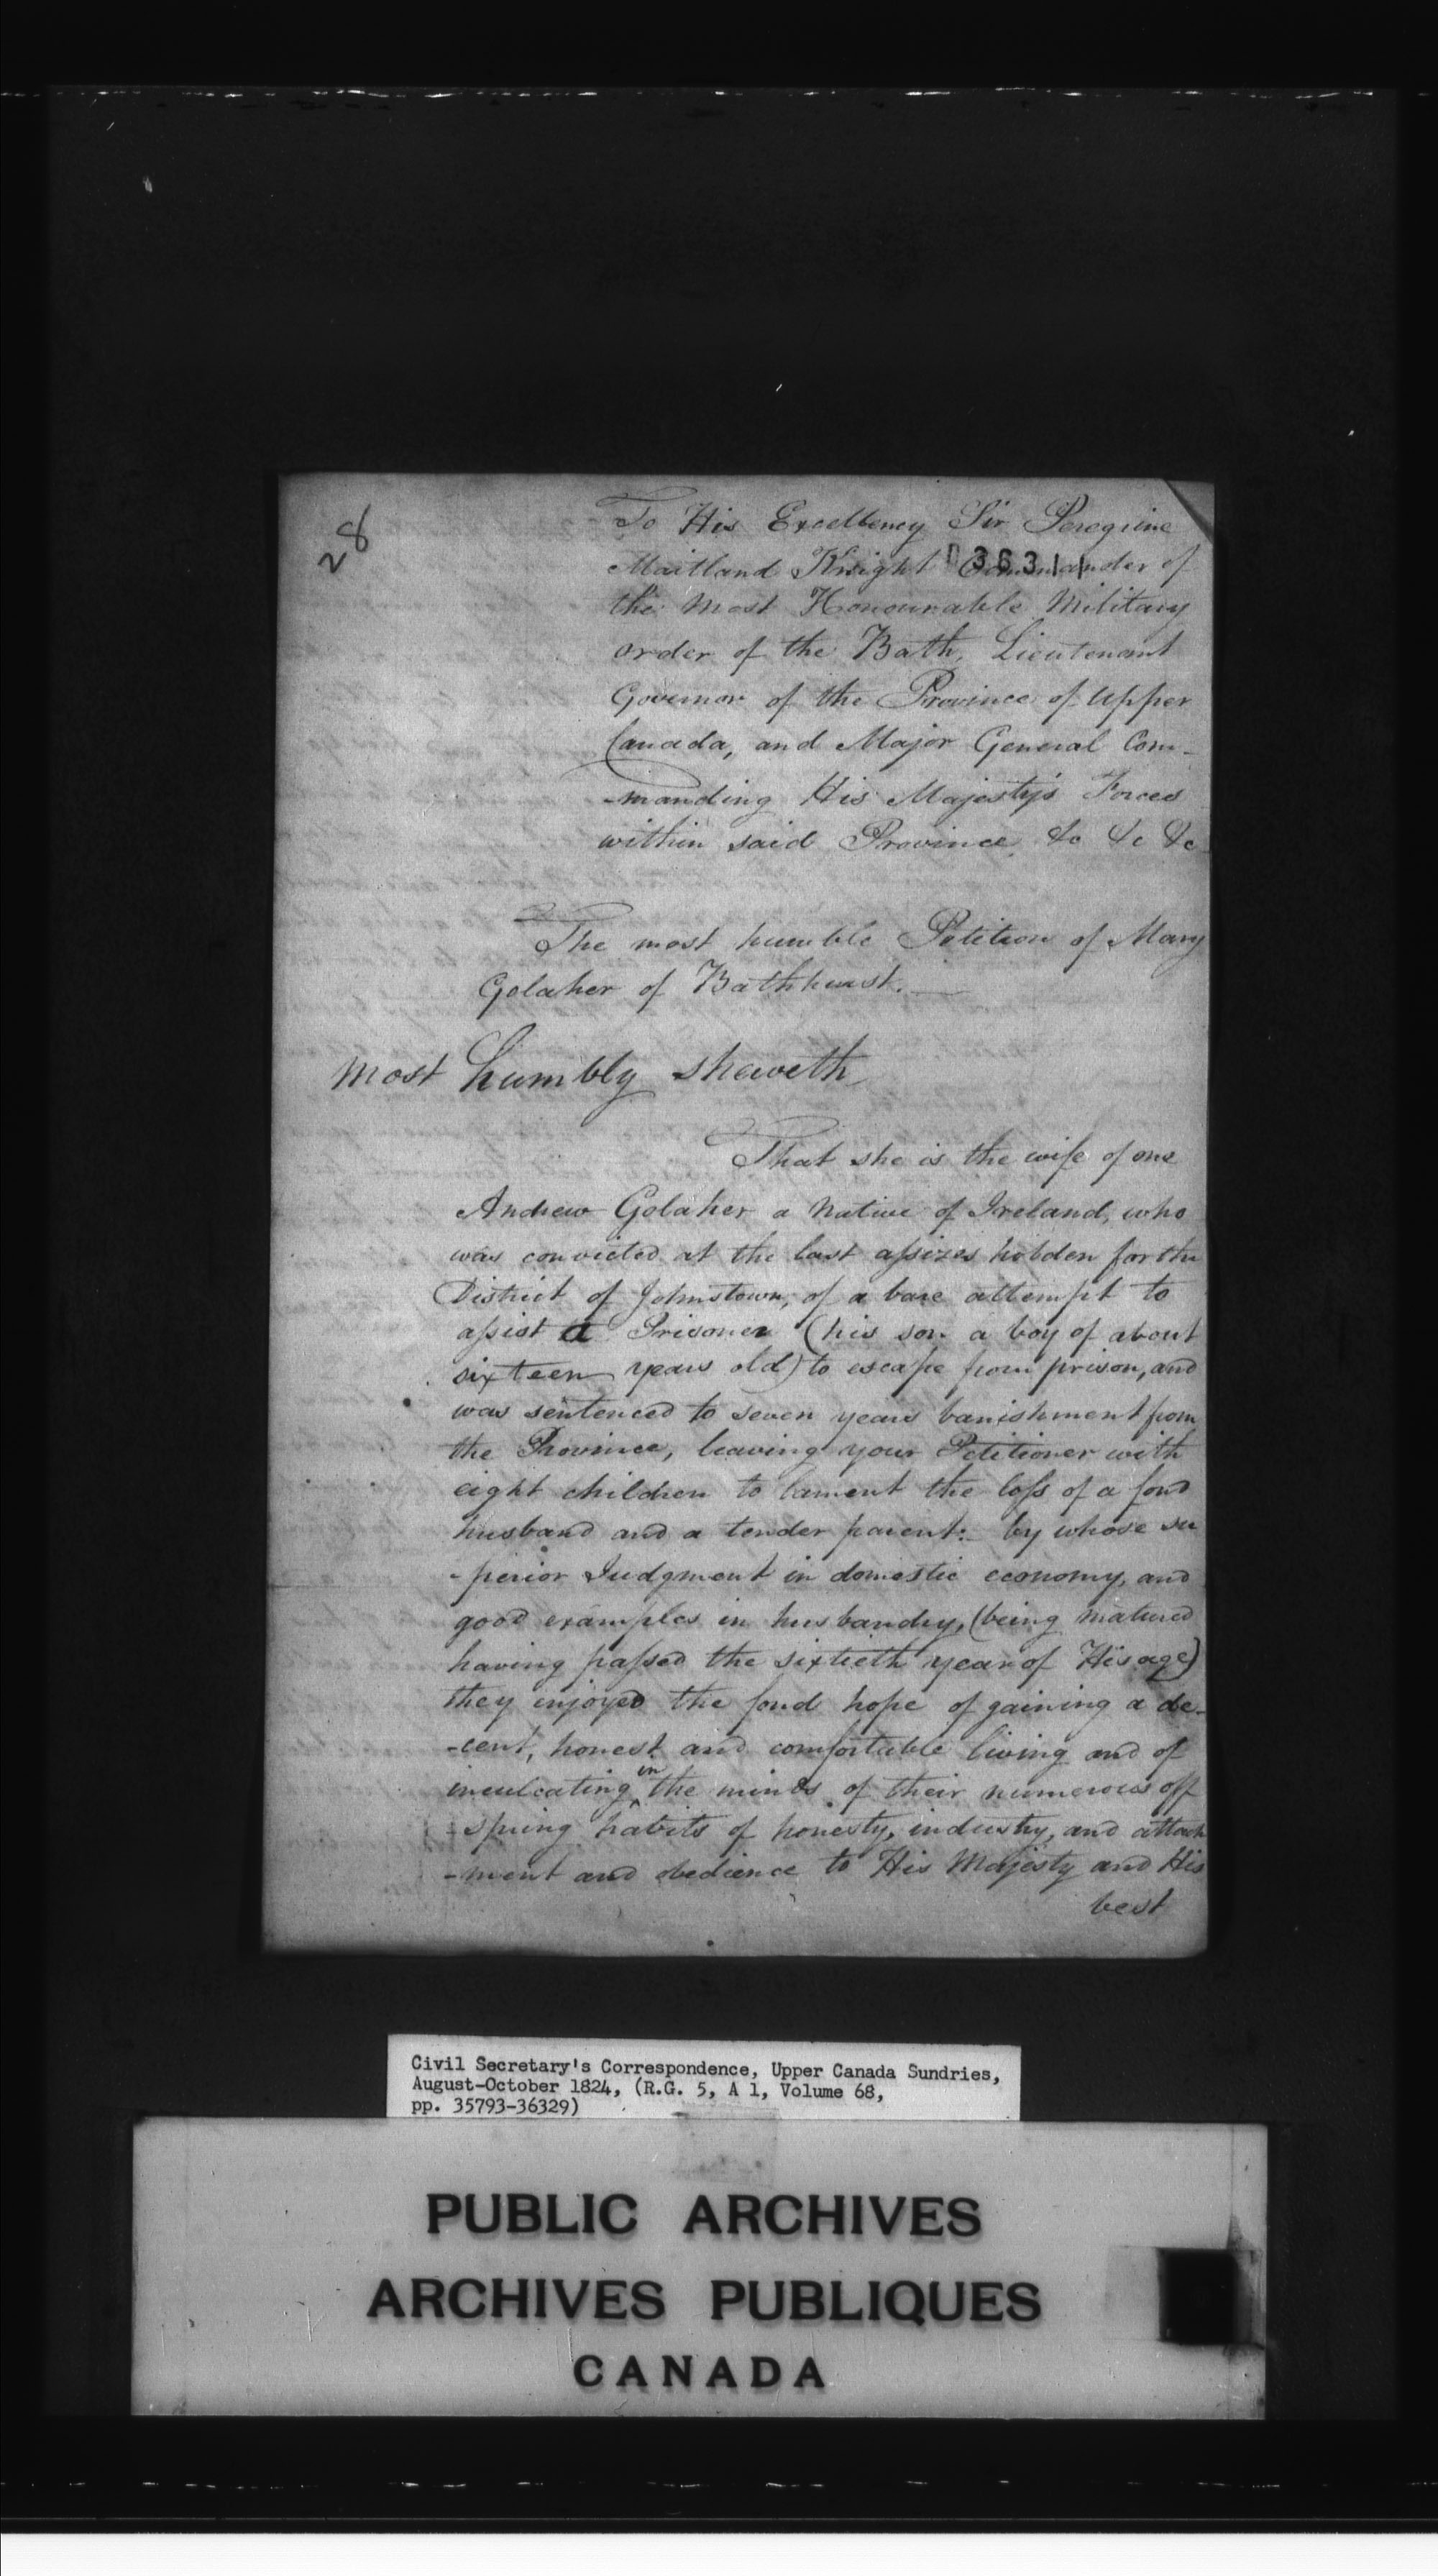 28
To His Excellency Sir Peregrine
036311
Maitland Knight Commander of
the most Honourable Military
order of the Bath, Lieutenant
Governor of the Province of Upper
Canada, and Major General Com-
-manding His Majesty's Forces
within said Province &c &c &c
The most humble Petition of Mary
Golaher of Bathhurst.
most humbly sheweth
That she is the wife of one
Andrew Golaher a native of Ireland, who
was convicted at the last assizes holden for the
District of Johnstown, of a bare attempt to
assist a Prisoner (his son a boy of about
sixteen years old) to escape from prison, and
was sentenced to seven years banishment from
the Province, leaving your Petitioner with
eight children to lament the loss of a fond
husband and a tender parent:- by whose su
-perior Judgment in domestic economy, and
good examples in husbandry, (being matured
having passed the sixtieth year of His age)
they injoyed the fond hope of gaining a de-
-cent, honest and comfortable living and of
inculcating in the minds of their numerous off
-spring habits of honesty, industry, and attach
-ment and obedience to His Majesty and His
best
Civil Secretary's Correspondence, Upper Canada Sundries,
August-October 1824, (R.G. 5, A 1, Volume 68,
pp. 35793-36329)
PUBLIC ARCHIVES
ARCHIVES PUBLIQUES
CANADA